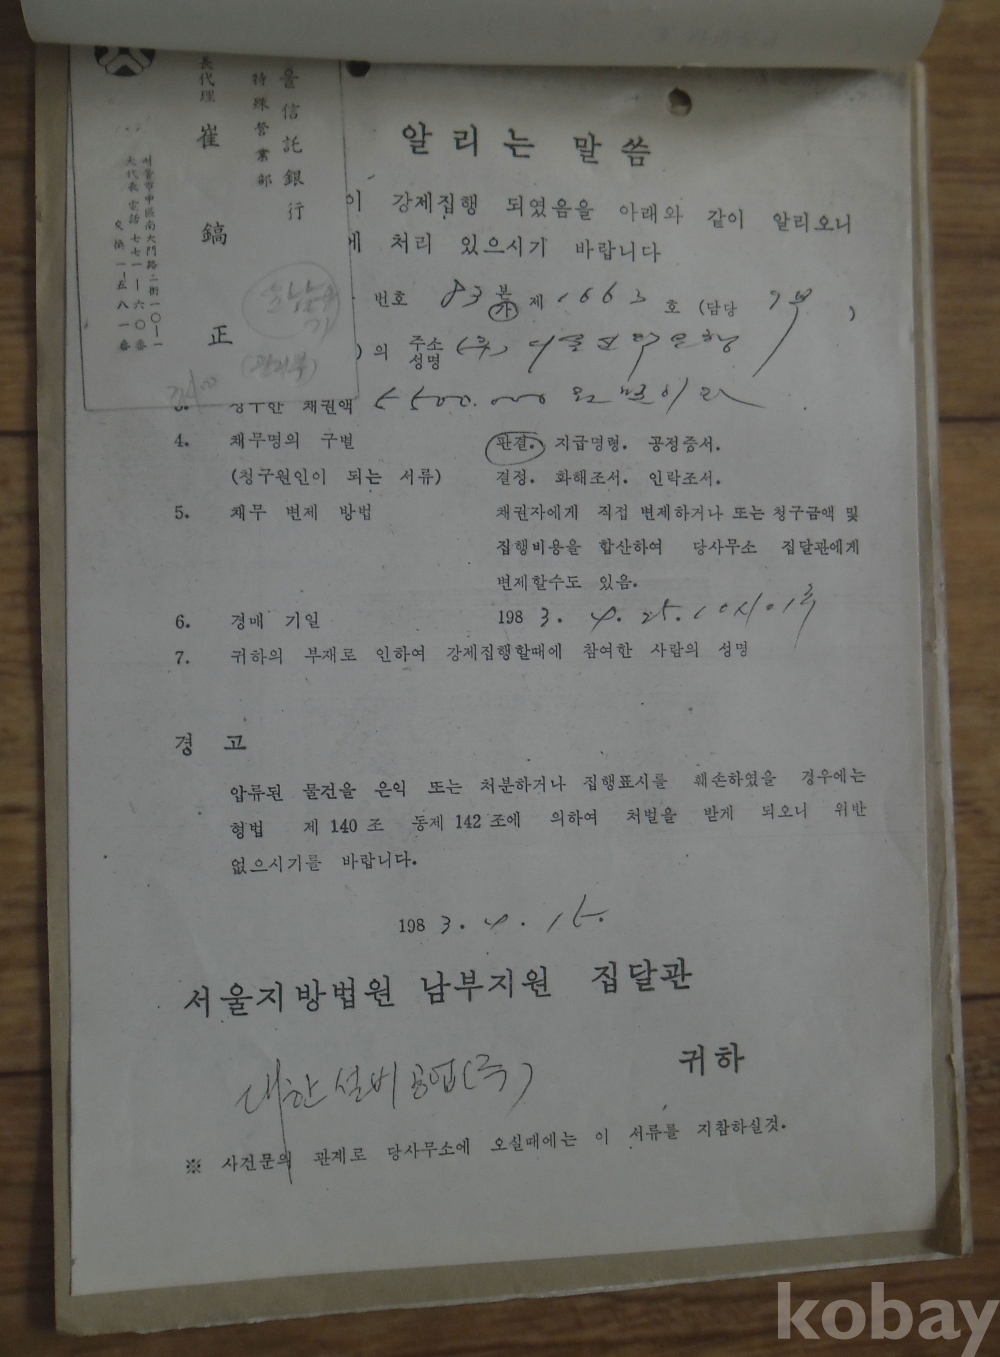 長代理
崔
鎬
正
특殊營業部
울信託銀行
서울市中區南大門路二街一〇—一
大代表電話 七七一—六〇番
交換 一—五八一番
(관리부)
알리는 말씀
이 강제집행 되였음을 아래와 같이 알리오니
에 처리 있으시기 바랍니다
번호 83 본 가 제 1663 호 (담당 7부 )
)의 주소 성명 (주) 서울신탁은행
3. 청구한 채권액 5500.000 원
4. 채무명의 구별 판결. 지급명령. 공정증서.
(청구원인이 되는 서류) 결정. 화해조서. 인락조서.
5. 채무 변제 방법 채권자에게 직접 변제하거나 또는 청구금액 및
집행비용을 합산하여 당사무소 집달관에게
변제할수도 있음.
6. 경매 기일 1983. 4. 25. 10시
7. 귀하의 부재로 인하여 강제집행할때에 참여한 사람의 성명
경 고
압류된 물건을 은익 또는 처분하거나 집행표시를 훼손하였을 경우에는
형법 제 140 조 동제 142 조에 의하여 처벌을 받게 되오니 위반
없으시기를 바랍니다.
1983. 4. 15.
서울지방법원 남부지원 집달관
대한설비공업(주) 귀하
※ 사건문의 관계로 당사무소에 오실때에는 이 서류를 지참하실것.
kobay